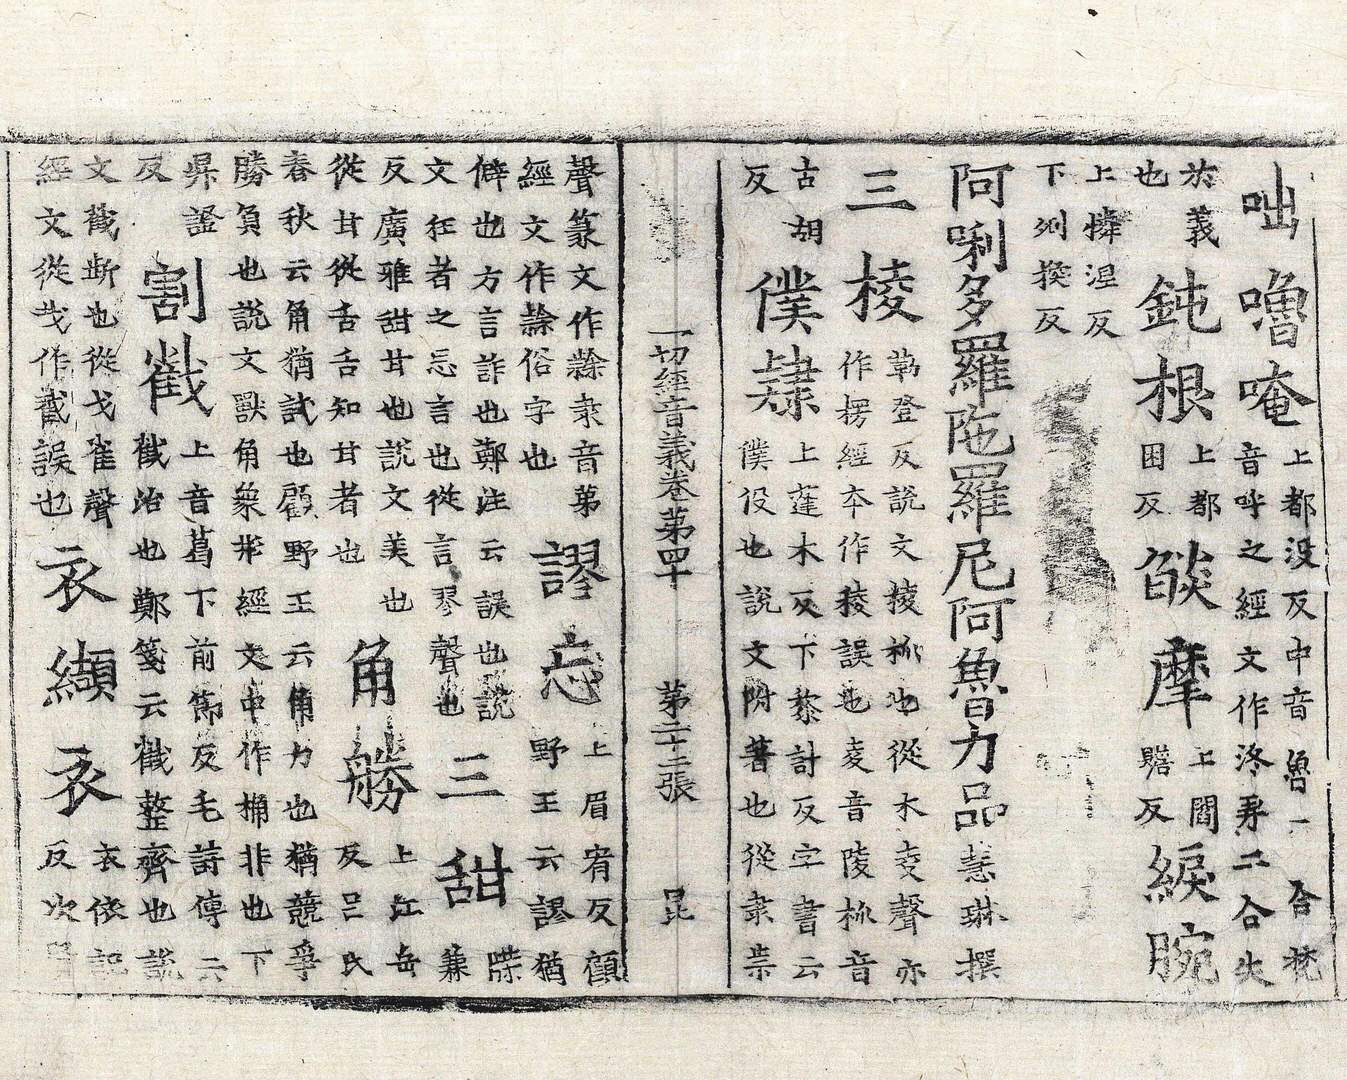 咄嚕唵上都没反中音魯一合梵音呼之經文作洛弄二合失
於義也鈍根上都困反燄摩上閻贍反綟腕
上憐涅反下剜換反
阿唎多羅陁羅尼阿魯力品慧琳撰
三棱勒登反說文棱柧也從木夌聲亦作楞經本作稜誤也夌音陵柧音
古胡反僕隸上蓬木反下黎計反字書云僕役也說文附著也從隶柰
一切經音義卷第四十 第二十二張 昆
聲篆文作隸隶音弟經文作隸俗字也謬忘上眉宥反顧野王云謬猶
僻也方言詐也鄭注云誤也說文狂者之忘言也從言翏聲也三甜牒兼
反廣雅甜甘也說文美也從甘從舌舌知甘者也角勝上江岳反呂氏
春秋云角猶試也顧野王云角力也猶競爭勝負也說文獸角象形經文中作桷非也下
昇證反割截上音葛下前節反毛詩傳云截治也鄭箋云截整齊也說
文截斷也從戈雀聲經文從𢦏作截誤也衣纈衣衣依記反次賢